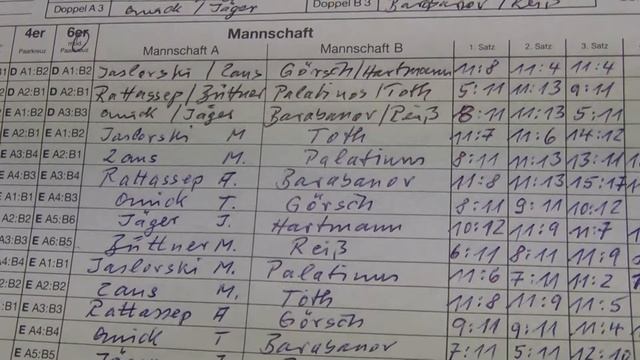 Doppel A 3 Quick / Jäger Doppel B 3 Barabanov / Reiß
4er 6er Mannschaft
Paarkreuz Paarkreuz Mannschaft A Mannschaft B 1. Satz 2. Satz 3. Satz
D A1:B2 Jaslorski / Zaus Görsch / Hartmann 11:8 11:4 11:4
D A2:B1 D A2:B1 Rattassep / Züttner Palatinus / Toth 5:11 11:13 9:11
E A1:B2 D A3:B3 Quick / Jäger Barabanov / Reiß 8:11 11:13 5:11
E A2:B1 E A1:B2 Jaslorski M Toth 11:7 11:6 14:12
E A3:B4 E A2:B1 Zaus M. Palatinus 8:11 11:13 13:11
E A4:B3 E A3:B4 Rattassep A. Barabanov 11:8 11:13 15:17
E A1:B1 E A4:B3 Quick T. Görsch 8:11 9:11 10:12
A2:B2 E A5:B6 Jäger J. Hartmann 10:12 11:9 11:7
A3:B3 E A6:B5 Züttner M. Reiß 6:11 8:11 11:9
A4:B4 E A1:B1 Jaslorski M. Palatinus 11:6 7:11 11:2
E A2:B2 Zaus M. Toth 11:8 11:9 11:5
:B1 E A3:B3 Rattassep A Görsch 9:11 9:11 11:4
E A4:B4 Quick T Barabanov 7:11 5:11
E A5:B5